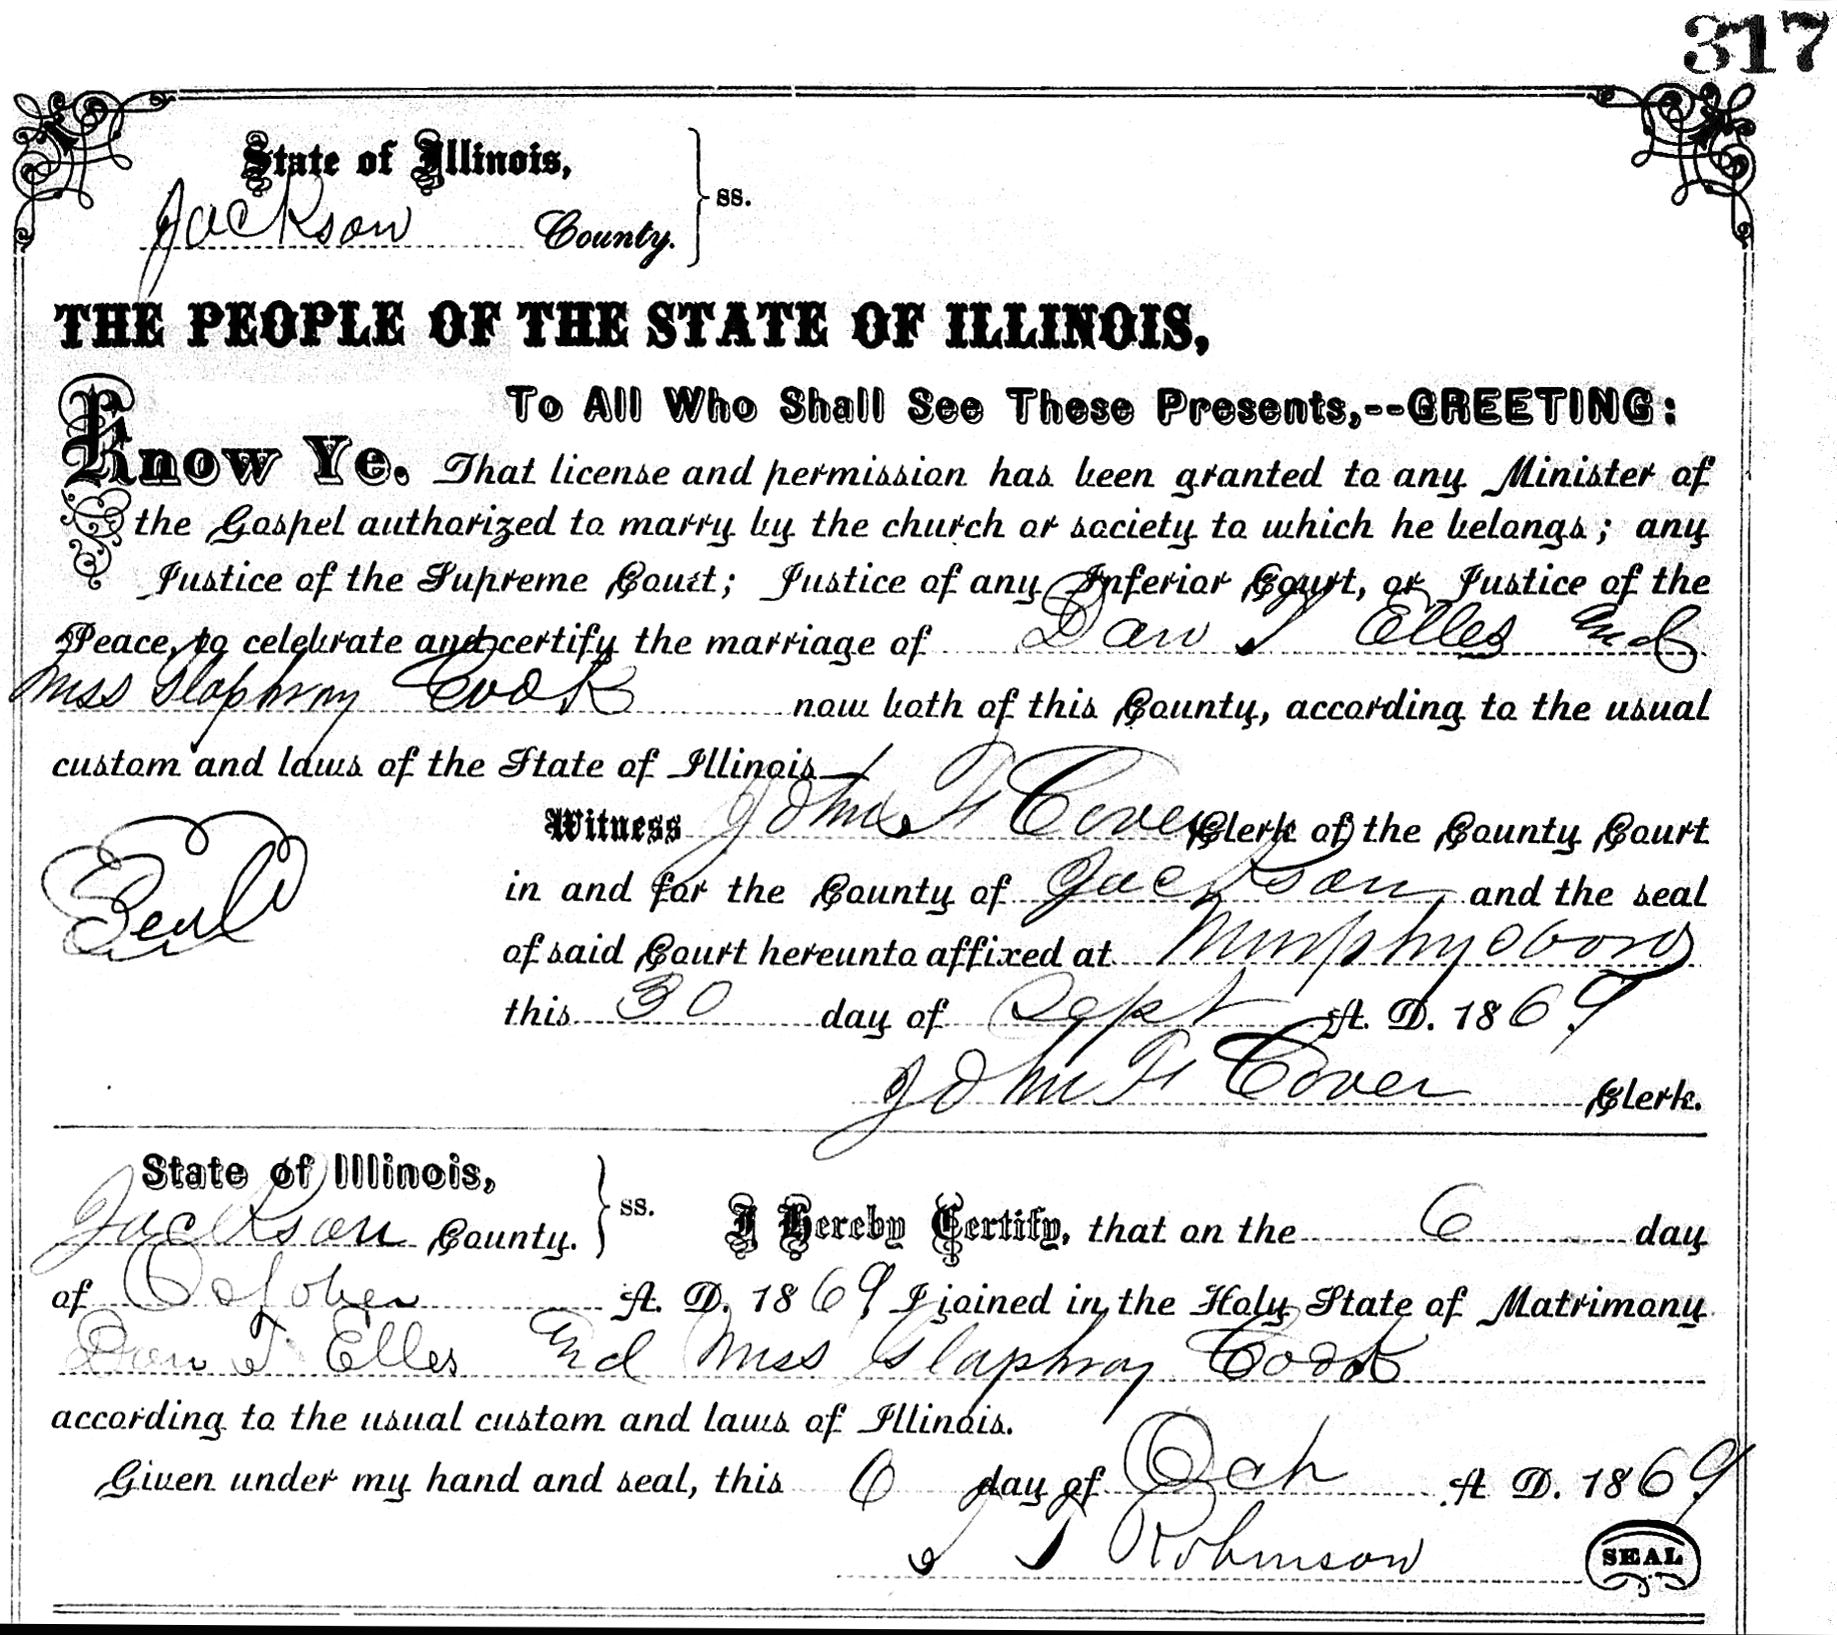 317
State of Illinois,
Jackson County. } ss.
THE PEOPLE OF THE STATE OF ILLINOIS,
To All Who Shall See These Presents,--GREETING:
Know Ye. That license and permission has been granted to any Minister of
the Gospel authorized to marry by the church or society to which he belongs; any
Justice of the Supreme Court; Justice of any Inferior Court, or Justice of the
Peace, to celebrate and certify the marriage of Dan T Elles and
Miss Glaphray Cook now both of this County, according to the usual
custom and laws of the State of Illinois
Witness John F Cover Clerk of the County Court
Seal
in and for the County of Jackson and the seal
of said Court hereunto affixed at Murphysboro
this 30 day of Sept A. D. 1869
John F Cover Clerk.
State of Illinois,
Jackson County. } ss. I Hereby Certify, that on the 6 day
of October A. D. 1869 I joined in the Holy State of Matrimony
Dan T. Elles and Miss Glaphray Cook
according to the usual custom and laws of Illinois.
Given under my hand and seal, this 6 day of Oct A D. 1869
Robinson SEAL